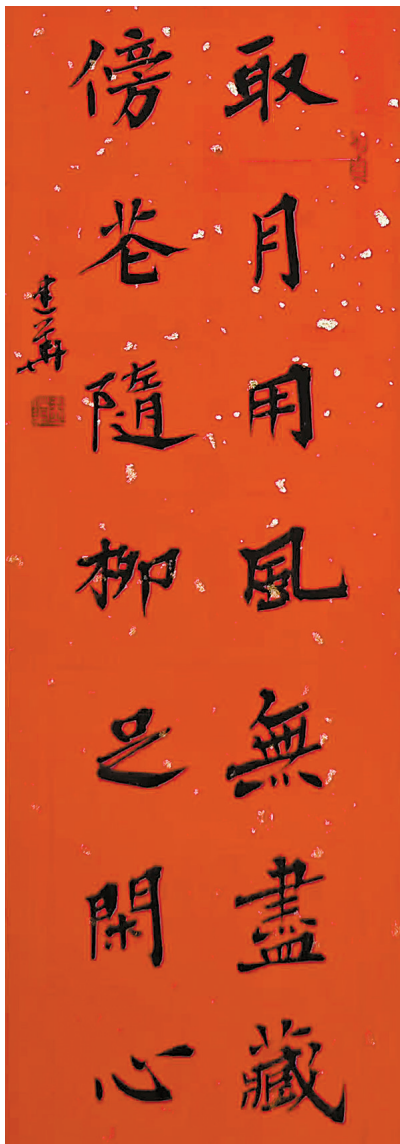 取月用風無盡藏
傍花隨柳足閑心
建華